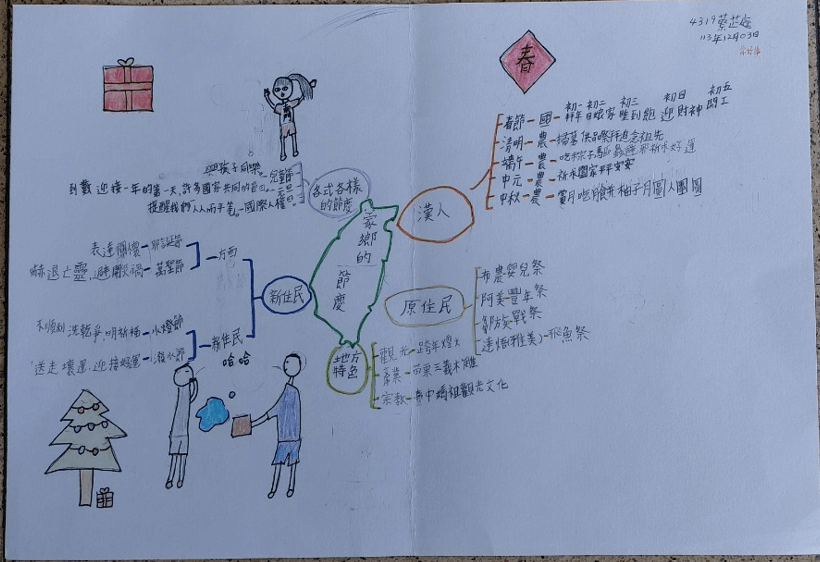 4319蔡芷
113年12月03日
春
家鄉的節慶
漢人
初一 初二 初三 初四 初五
春節 國 拜年 回娘家 睡到飽 迎財神 開工
清明 農 掃墓 供品祭拜追念祖先
端午 農 吃粽子
中元 農
中秋 農 賞月吃月餅 柚子月圓人團圓
原住民
布農嬰兒祭
阿美豐年祭
鄒族戰祭
達悟(雅美) 飛魚祭
地方特色
觀光 跨年煙火
產業 苗栗三義木雕
宗教 臺中媽祖觀光文化
各式各樣的節慶
兒童節
元旦 許多國家共同的節日 迎接一年的第一天
國際人權日 提醒我們人人而平等
新住民
西方
耶誕節 表達關懷
萬聖節 嚇退亡靈,避開災禍
新住民
水燈節
潑水節 送走壞運,迎接好運
哈哈